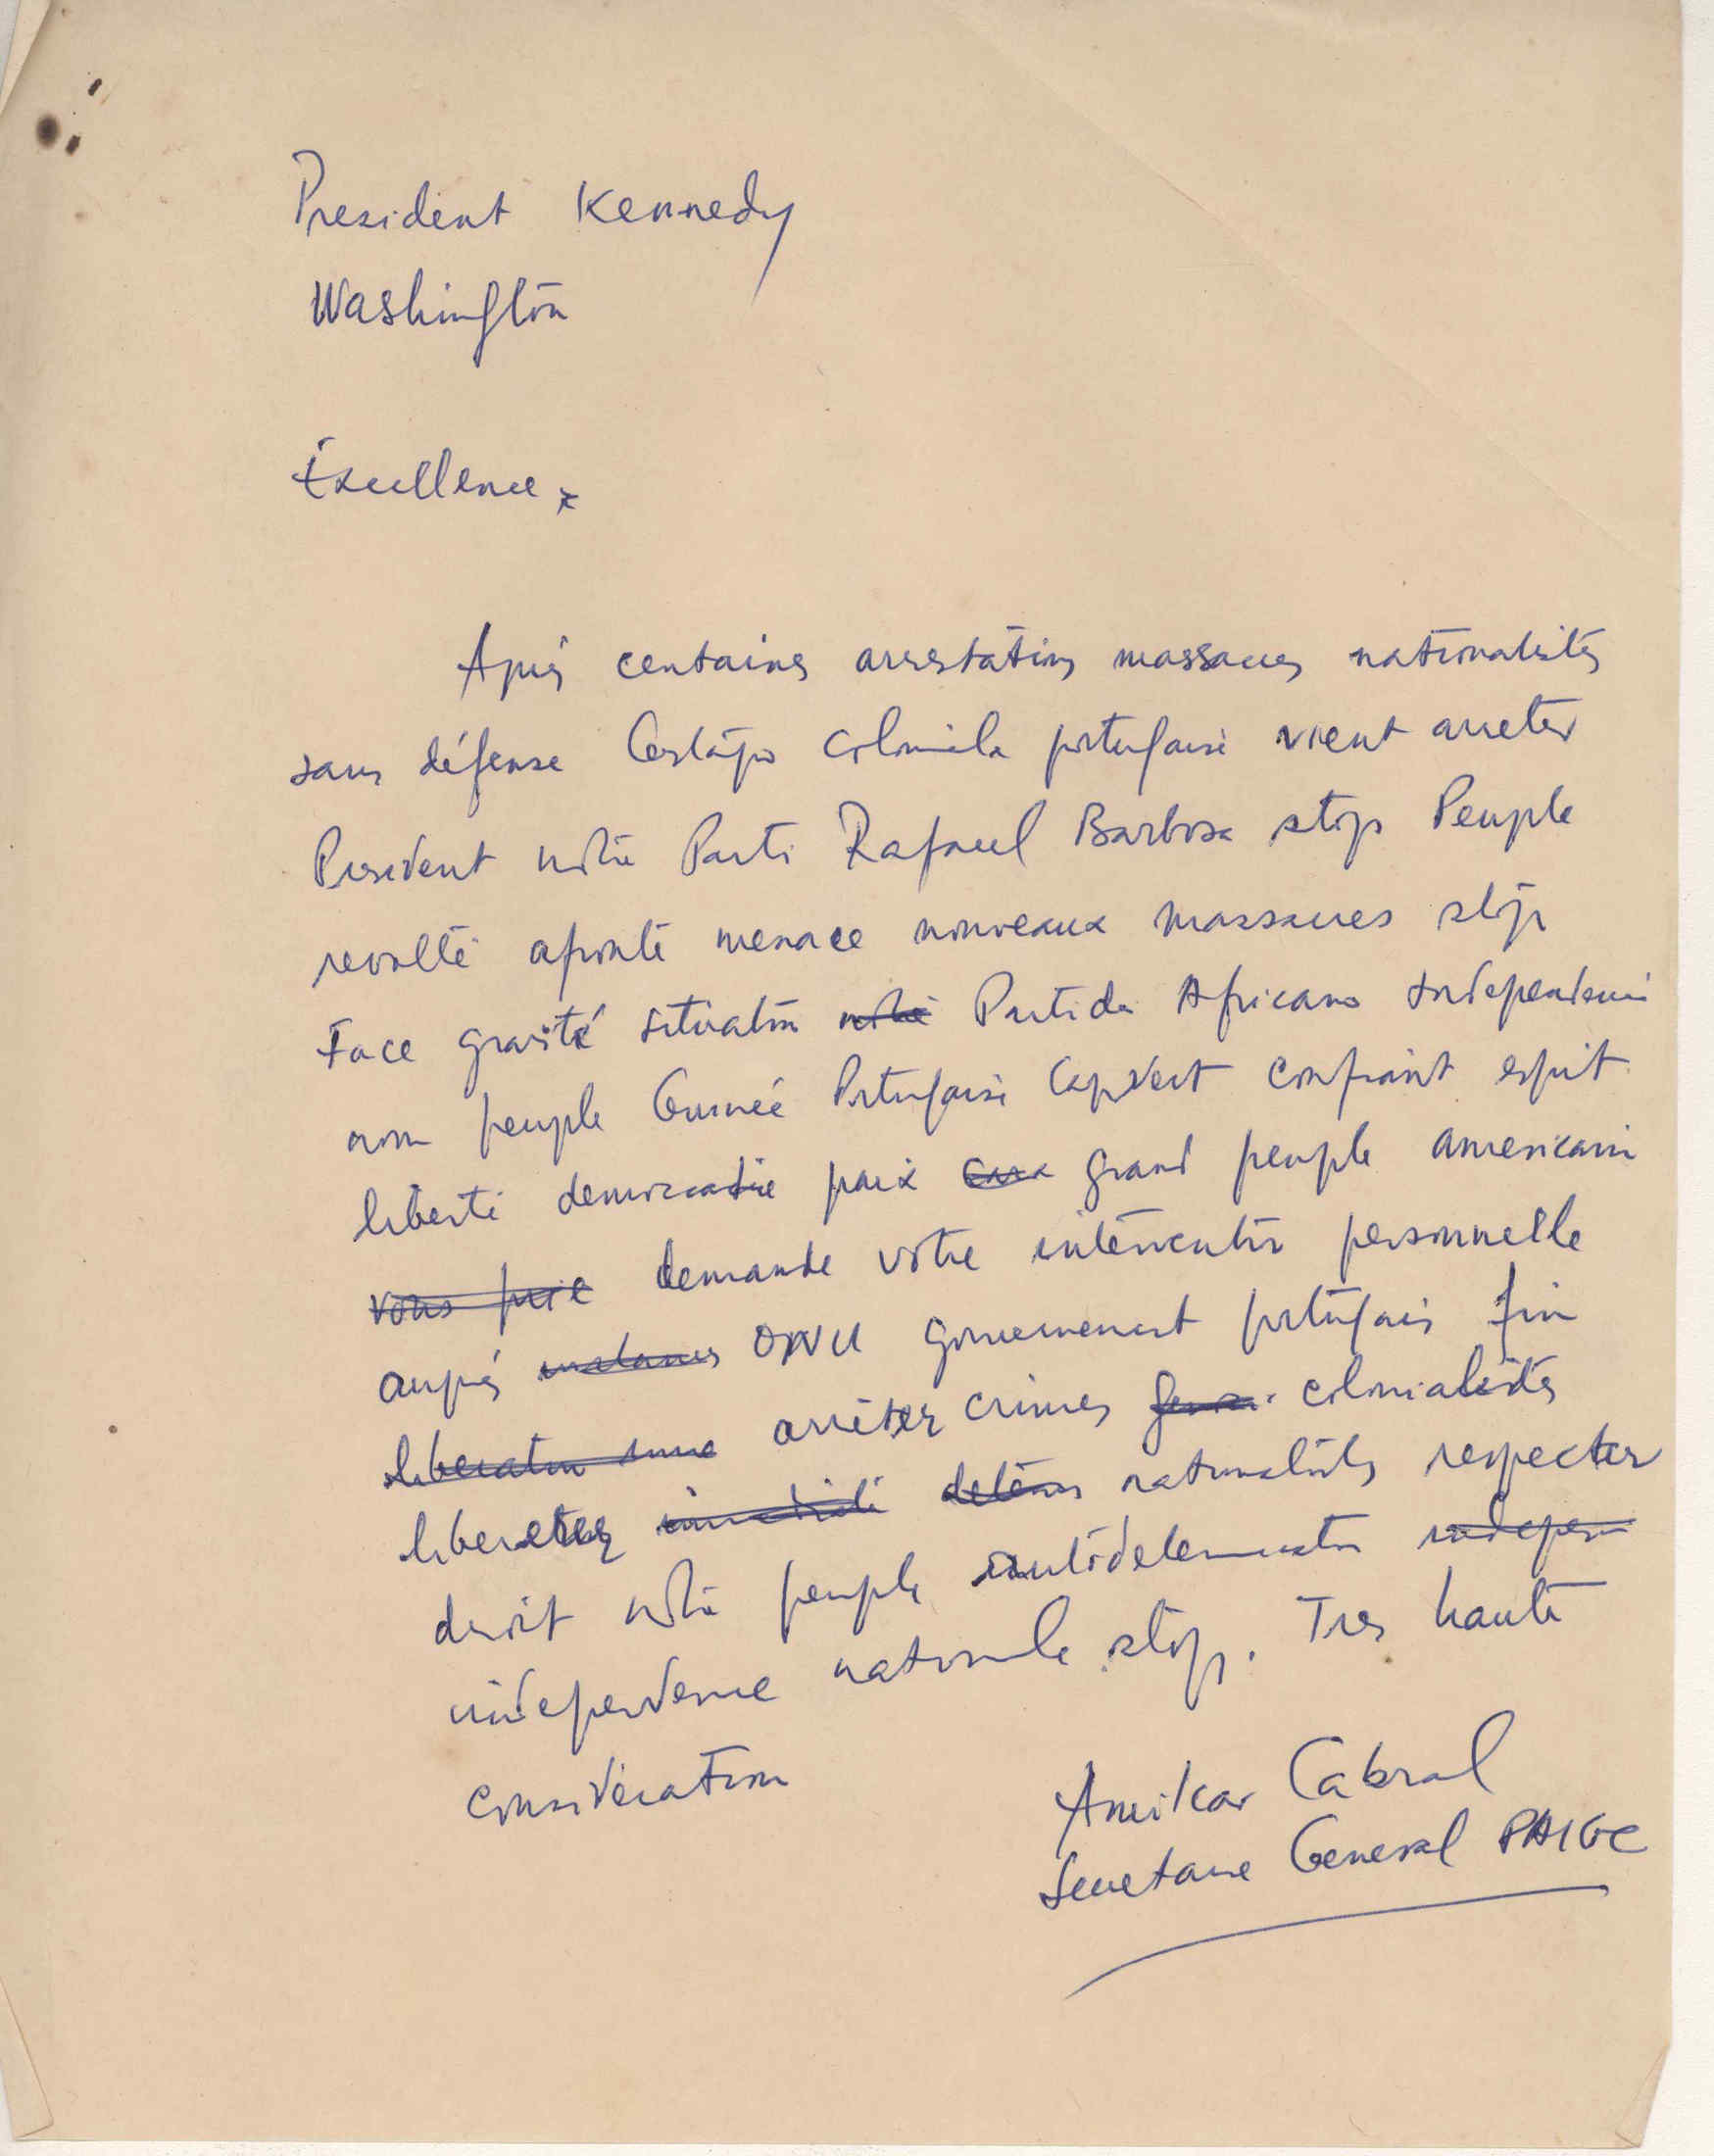 President Kennedy
Washington
Excellence,
Après centaines arrestations massacres nationalistes
sans défense Gestapo coloniale portugaise vient arreter
President notre Parti Rafael Barbosa stop Peuple
revolté afronte menace nouveaux massacres stop
Face gravité situation notre Partido Africano Independencia
nom peuple Guinée Portugaise Capvert confiant esprit
liberté democratie paix grand peuple americain
vous prie demande votre intervention personnelle
auprès instances ONU gouvernement portugais fin
liberation imme arrêter crimes colonialistes
liberer immediate detenus nationalistes respecter
droit notre peuple autodetermination indepen
independence nationale stop. Tres haute
consideration
Amilcar Cabral
Secretaire General PAIGC